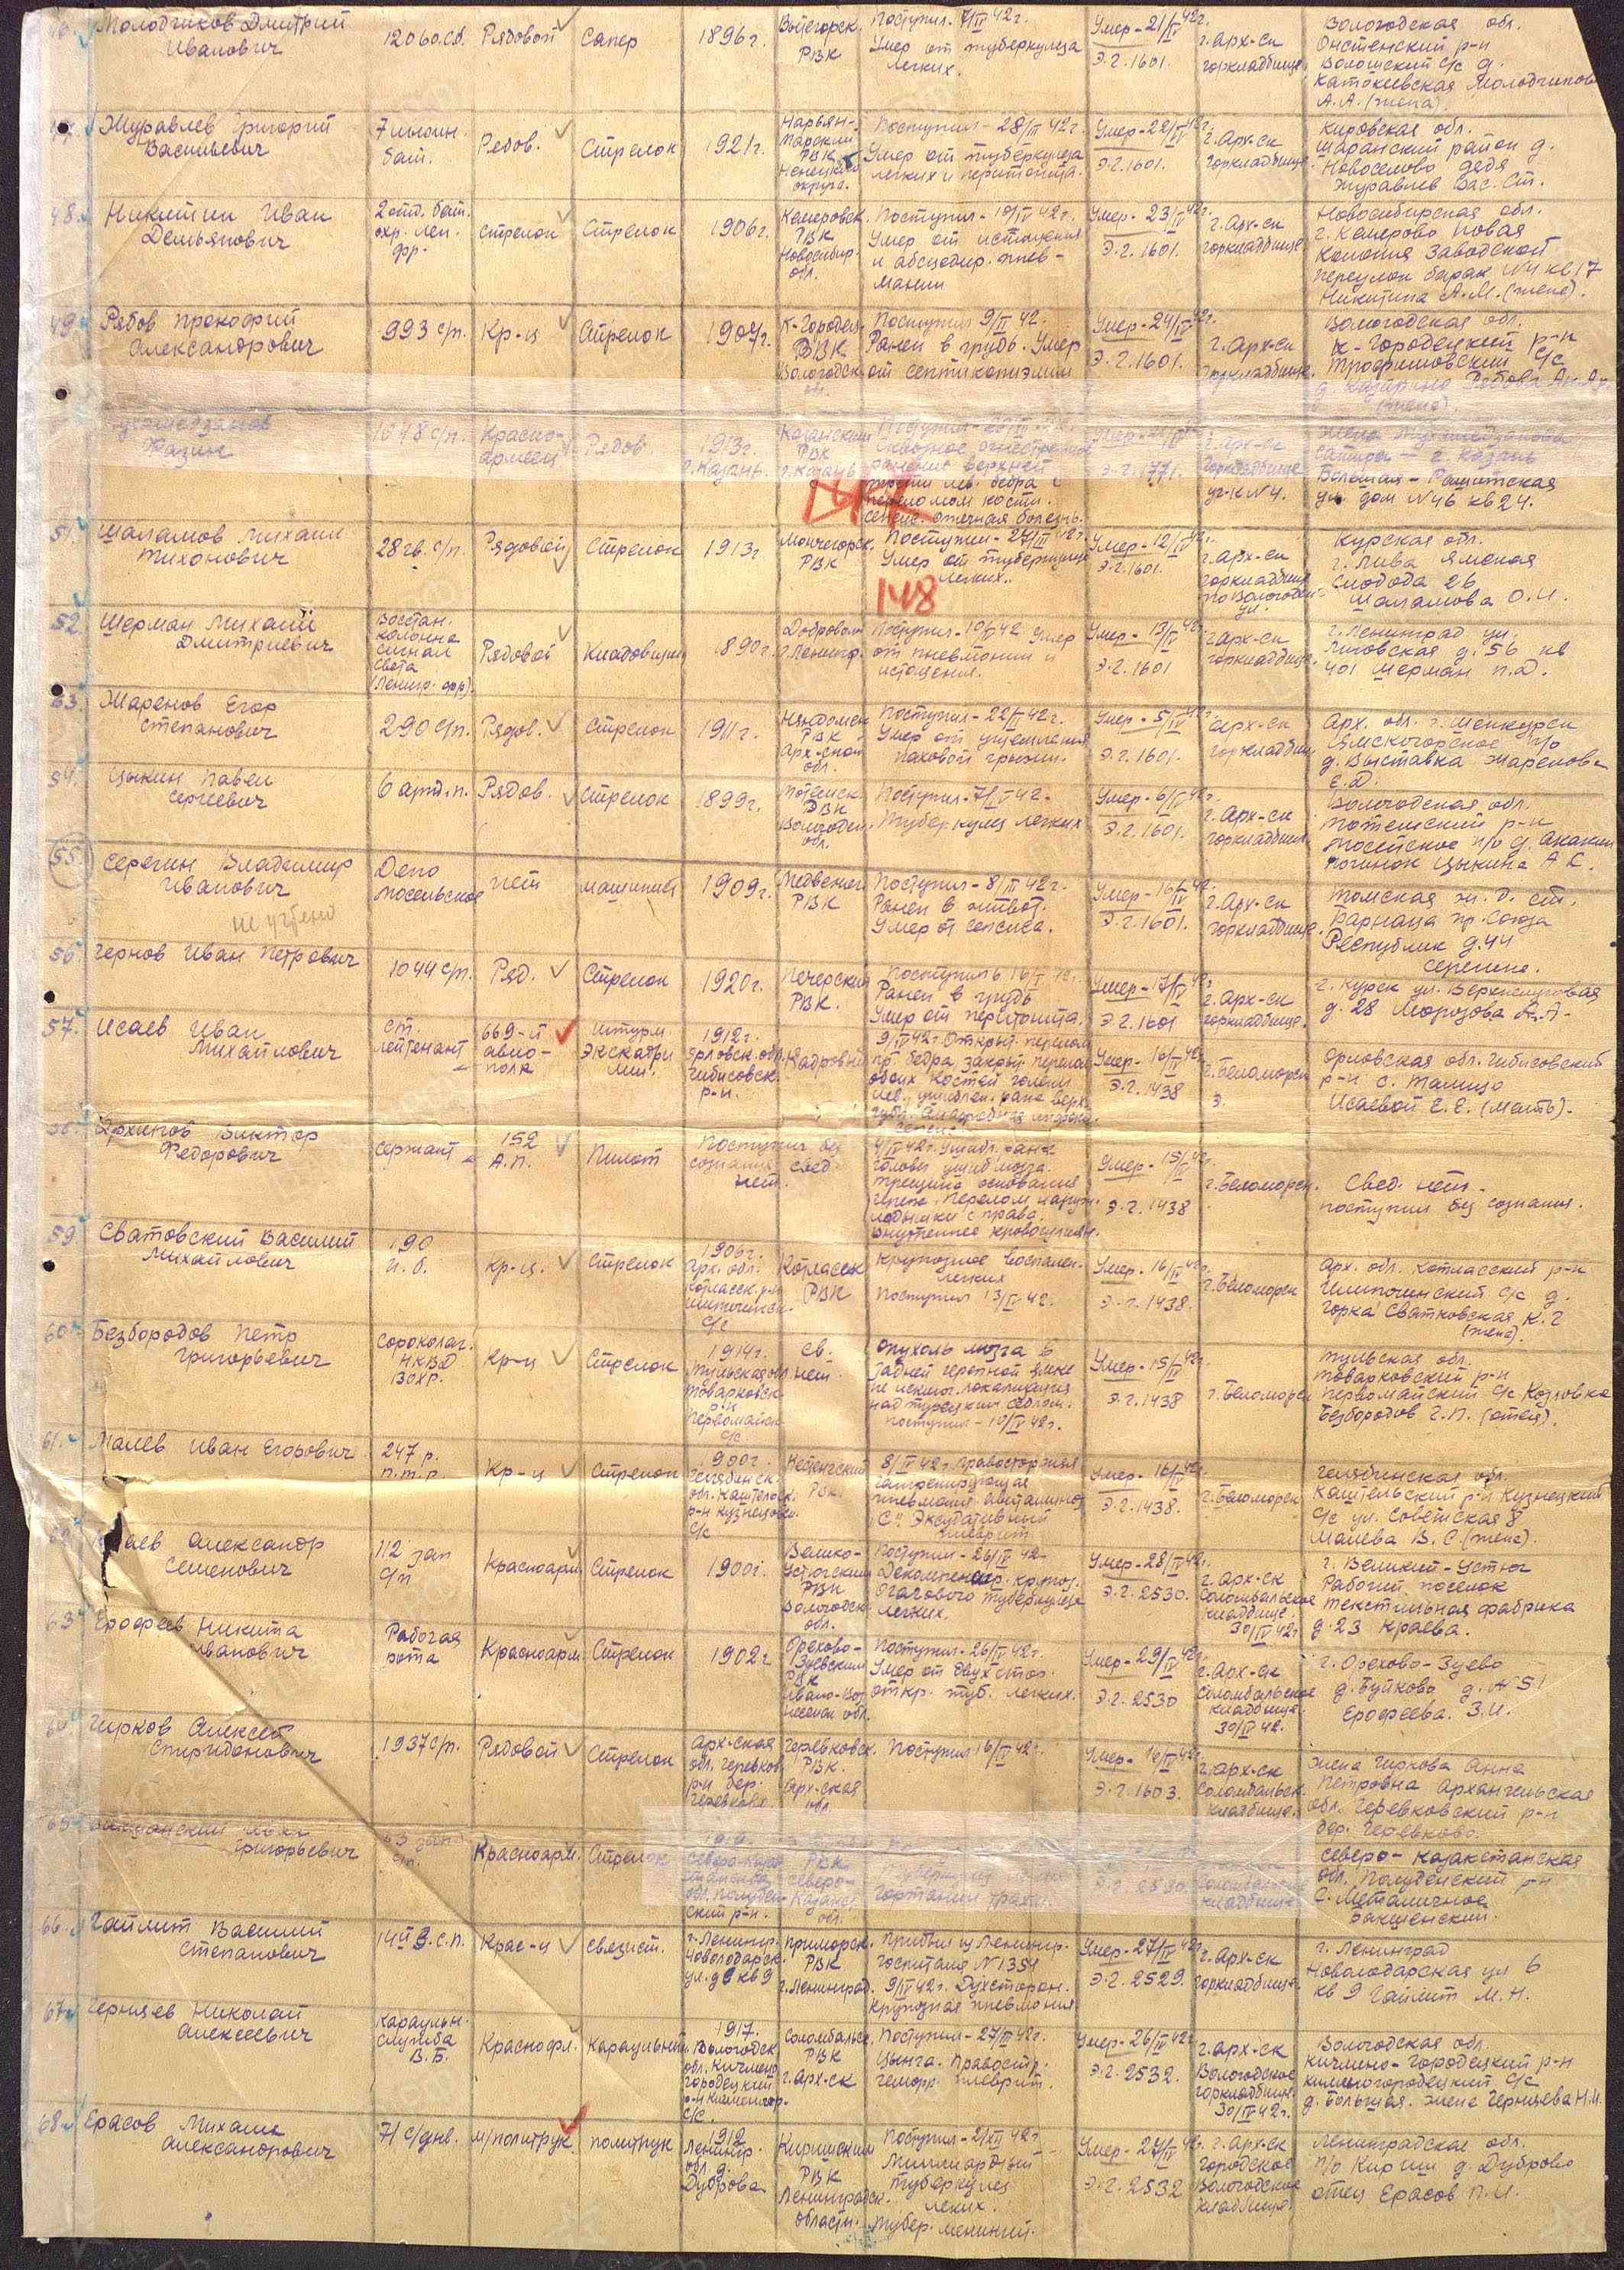 Молодчиков Дмитрий
Иванович
120 бо.сб.
Рядовой
Сапер
1896г.
РВК
Поступил - 7/IV 42г.
Умер от туберкулеза
легких.
Умер - 21/IV 42г.
Э.г.1601.
г. Арх-ск
горкладбище.
Вологодская обл.
р-н
с/с д.
Молодчикова
А.А. (жена).
Журавлев Григорий
Васильевич
бат.
Рядов.
Стрелок
1921г.
Нарьян-
Марский
РВК
Ненецкого
округа.
Поступил - 28/III 42г.
Умер от туберкулеза
легких и перитонита.
Умер - 22/IV 42г.
Э.г.1601.
г. Арх-ск
горкладбище.
Кировская обл.
Шаранский район д.
Новоселово дядя
Журавлев Вас. Ст.
48.
Никитин Иван
Демьянович
2 отд. бат.
охр. Лен.
фр.
стрелок
Стрелок
1906г.
Кемеровск.
РВК
Новосибир.
обл.
Поступил - 10/IV 42г.
Умер от истощения
и абсцедир. пнев-
монии
Умер - 23/IV 42г.
Э.г.1601.
г. Арх-ск
горкладбище
Новосибирская обл.
г. Кемерово Новая
Колония Заводской
переулок барак №4 кв 17
Никитина А.М. (жена).
49.
Рябов Прокофий
Александрович
993 с/п.
Кр-ц
Стрелок
1907г.
К-Городец
РВК
Вологодск.
Поступил 9/II 42.
Ранен в грудь. Умер
от септикопиэмии
Умер - 24/IV 42г.
Э.г.1601.
г. Арх-ск
горкладбище.
Вологодская обл.
К-Городецкий р-н
Трофимовский с/с
Рябова Ан. Ан.
(жена).
Фазил
1048 с/п.
Красно-
армеец
Рядов.
1913г.
г. Казань.
Казанский
РВК
г. Казань
Сквозное огнестрельное
ранение верхней
трети лев. бедра с
переломом кости.
Сепсис. отечная болезнь.
Э.г. 1771.
г. Арх-ск
горкладбище
уч-к №4.
Казань
ул. дом №46 кв 24.
51.
Шаламов Михаил
Тихонович
28 гв. с/п.
Рядовой
Стрелок
1913г
Мончегорск.
РВК
Поступил - 27/III 42г.
Умер от туберкулеза
легких.
148
Умер - 12/IV 42г.
Э.г.1601.
г. Арх-ск
горкладбище
по Вологодск.
ул.
Курская обл.
г. Лива Ямская
Слобода 26
Шаламова О.И.
52.
Шерман Михаил
Дмитриевич
Восстан.
колонна
сигнал
света
(Ленингр. фр.)
Рядовой
Кладовщик
1890г.
Доброволь.
г. Ленингр.
Поступил - 10/IV 42 умер
от пневмонии и
истощения.
Умер - 13/IV 42г.
Э.г.1601
г. Арх-ск
горкладбище.
г. Ленинград ул.
Лиговская д. 56 кв
401 Шерман П.Д.
53.
Жаренов Егор
Степанович
290 с/п.
Рядов.
Стрелок
1911г.
Няндомск
РВК
Арх-ской
обл.
Поступил - 22/II 42г.
Умер от ущемления
паховой грыжи.
Умер - 5/IV 42г.
Э.г.1601.
г. Арх-ск
горкладбище
Арх. обл. г. Шенкурск
Ямскогорское п/о
д. Выставка Жаренова
Е.Д.
54.
Цыкин Павел
Сергеевич
6 арт.п.
Рядов.
Стрелок
1899г.
Тотемск.
РВК
Вологодск.
обл.
Поступил - 7/IV 42.
Туберкулез легких
Умер - 6/IV 42г.
Э.г.1601.
г. Арх-ск
горкладбище
Вологодская обл.
Тотемский р-н
п/о д.
Починок Цыкина А.С.
55.
Серегин Владимир
Иванович
не учтено
Депо
нет
машинист
1909г.
Медвежег
РВК
Поступил - 8/III 42г.
Ранен в живот.
Умер от сепсиса.
Умер - 16/IV 42г.
Э.г.1601.
г. Арх-ск
горкладбище.
Томская ж.д. ст.
Барнаул пр. Союза
Республик д. 44
Серегина.
56.
Чернов Иван Петрович
1044 с/п.
Ряд.
Стрелок
1920г.
Печерский
РВК.
Ранен в грудь
Умер от перитонита.
Э.г.1601
г. Арх-ск
горкладбище.
г. Курск ул.
д. 28 Морозова А.Д.
57.
Исаев Иван
Михайлович
ст.
лейтенант
669-й
авио-
полк
штурм.
1912г.
Орловск. обл.
Чибисовск.
р-н.
Кадровый
9/IV 42г. Открыт. перелом
пр. бедра, закрыт. перелом
обоих костей голени
лев., ушиблен. рана верх.
Умер - 10/IV 42г.
Э.г. 1438
г. Беломорск
Орловская обл. Чибисовский
р-н с. Талица
Исаевой Е.Е. (мать).
58.
Архипов Виктор
Федорович
сержант
152
А.П.
Пилот
Поступил без
сознания свед.
нет.
4/IV 42г. Ушибл. рана
головы ушиб мозга.
трещина основания
черепа. Перелом наружн.
лодыжки справа.
Внутреннее кровоизлиян.
Умер - 15/IV 42г.
Э.г. 1438
г. Беломорск.
Свед. нет.
поступил без сознания.
59
Сватовский Василий
Михайлович
190
п.б.
Кр-ц.
Стрелок
1906г.
Арх. обл.
Котласск. р-н
с/с
Котласск
РВК
Крупозное воспален.
легких
Поступил 13/IV 42.
Умер - 16/IV 42г.
Э.г. 1438.
г. Беломорск
Арх. обл. Котласский р-н
с/с д.
Горка Святковская К.Г.
(жена).
60.
Безбородов Петр
Григорьевич
Сороколаг.
НКВД
ВОХР.
Кр-ц
Стрелок
1914г.
Тульская обл.
Товарковск.
р-н
Первомайск.
с/с
св.
нет
Опухоль мозга в
задней черепной ямке
не исключ. локализация
над турецким седлом.
поступил - 10/IV 42г.
Умер - 15/IV 42г.
Э.г. 1438
г. Беломорск
Тульская обл.
Товарковский р-н
Первомайский с/с Козловка
Безбородов Г.П. (отец).
61.
Малев Иван Егорович
247 р.
п.т.р.
Кр-ц
Стрелок
900г.
Челябинск.
обл.
с/с
РВК.
8/IV 42г. правосторонняя
гангренирующая
пневмония авитаминоз
"С" Экссудативный
плеврит.
Умер - 16/IV 42г.
Э.г. 1438.
г. Беломорск
Челябинская обл.
р-н Кузнецкий
с/с ул. Советская 8
Малева В.С. (жена).
Александр
Семенович
112 зап
с/п
Красноарм.
Стрелок
1900г.
Велико-
Устюгский
РВК
Вологодск.
обл.
Поступил - 26/IV 42
Декомпенсир. крупно-
очагового туберкулеза
легких.
Умер - 28/IV 42г.
Э.г. 2530.
г. Арх-ск
Соломбальское
кладбище.
30/IV 42г
г. Великий-Устюг
Рабочий поселок
текстильная фабрика
д. 23 Краева.
63.
Ерофеев Никита
Иванович
Рабочая
рота
Красноарм.
Стрелок
1902г
Орехово-
Зуевским
РВК
Ивано-Воз
несенск обл.
Поступил - 26/IV 42г.
Умер от двухстор.
откр. туб. легких.
Умер - 29/IV 42г.
Э.г. 2530
г. Арх-ск
Соломбальское
кладбище.
30/IV 42.
г. Орехово-Зуево
д.
Ерофеева. З.И.
64.
Чирков Алексей
Спиридонович
1937 с/п.
Рядовой
Стрелок
Арх-ская
обл. Черевков
р-н дер.
Черевково.
Черевковск.
РВК.
Арх-ская
обл.
Поступил 16/IV 42г.
Умер - 16/IV 42г.
Э.г. 1603.
г. Арх-ск
Соломбальск.
кладбище.
жена Чиркова Анна
Петровна Архангельская
обл. Черевковский р-н
дер. Черевково.
65.
Григорьевич
Красноарм.
Стрелок
Северо-Каза
обл.
ский р-н.
РВК
Северо-
Казахст.
обл.
гортани и трахеи
Э.г. 2530
Соломбальское
кладбище.
Северо-Казахстанская
обл. Полуденский р-н
66.
Гаймит Василий
Степанович
Крас-ц
связист.
г. Ленингр.
Новолодарск.
ул. д 6 кв 9
Приморск.
РВК
г. Ленинград.
Прибыл из Ленингр.
госпиталя № 1354
9/IV 42г. Двухсторон.
крупозная пневмония.
Умер - 27/IV 42г.
Э.г. 2529.
г. Арх-ск
горкладбище.
г. Ленинград
Новолодарская ул 6
кв 9 Гаймит М.Н.
67.
Чернцев Николай
Алексеевич
Караульн.
служба
В.Б.
Краснофл.
Караульный
1917.
Вологодск
обл. Кичмено
городецкий
с/с.
Соломбальск.
РВК
г. Арх-ск
Поступил - 27/III 42г.
Цынга. Правостр.
геморр. плеврит.
Умер - 26/IV 42г
Э.г. 2532.
г. Арх-ск
Вологодское
горкладбище.
30/IV 42г.
Вологодская обл.
Кичмено-Городецкий р-н
Кичменогородецкий с/с
д. Большая. жена Чернцева Н.И.
68.
Ерасов Михаил
Александрович
71 с/див.
м/политрук.
политрук
1912
Ленингр.
обл. д.
Дуброва
Киришским
РВК
Ленинградск.
области.
Миллиардный
туберкулез
легких.
Тубер. менингит.
Умер - 27/IV 42г.
Э.г. 2532
г. Арх-ск
Городское
Вологодское
кладбище.
Ленинградская обл.
п/о Кириши д. Дуброво
отец Ерасов П.И.